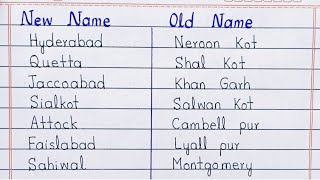 New Name Old Name
Hyderabad Neroon Kot
Quetta Shal Kot
Jaccoabad Khan Garh
Sialkot Salwan Kot
Attock Cambell pur
Faislabad Lyall pur
Sahiwal Montgomery